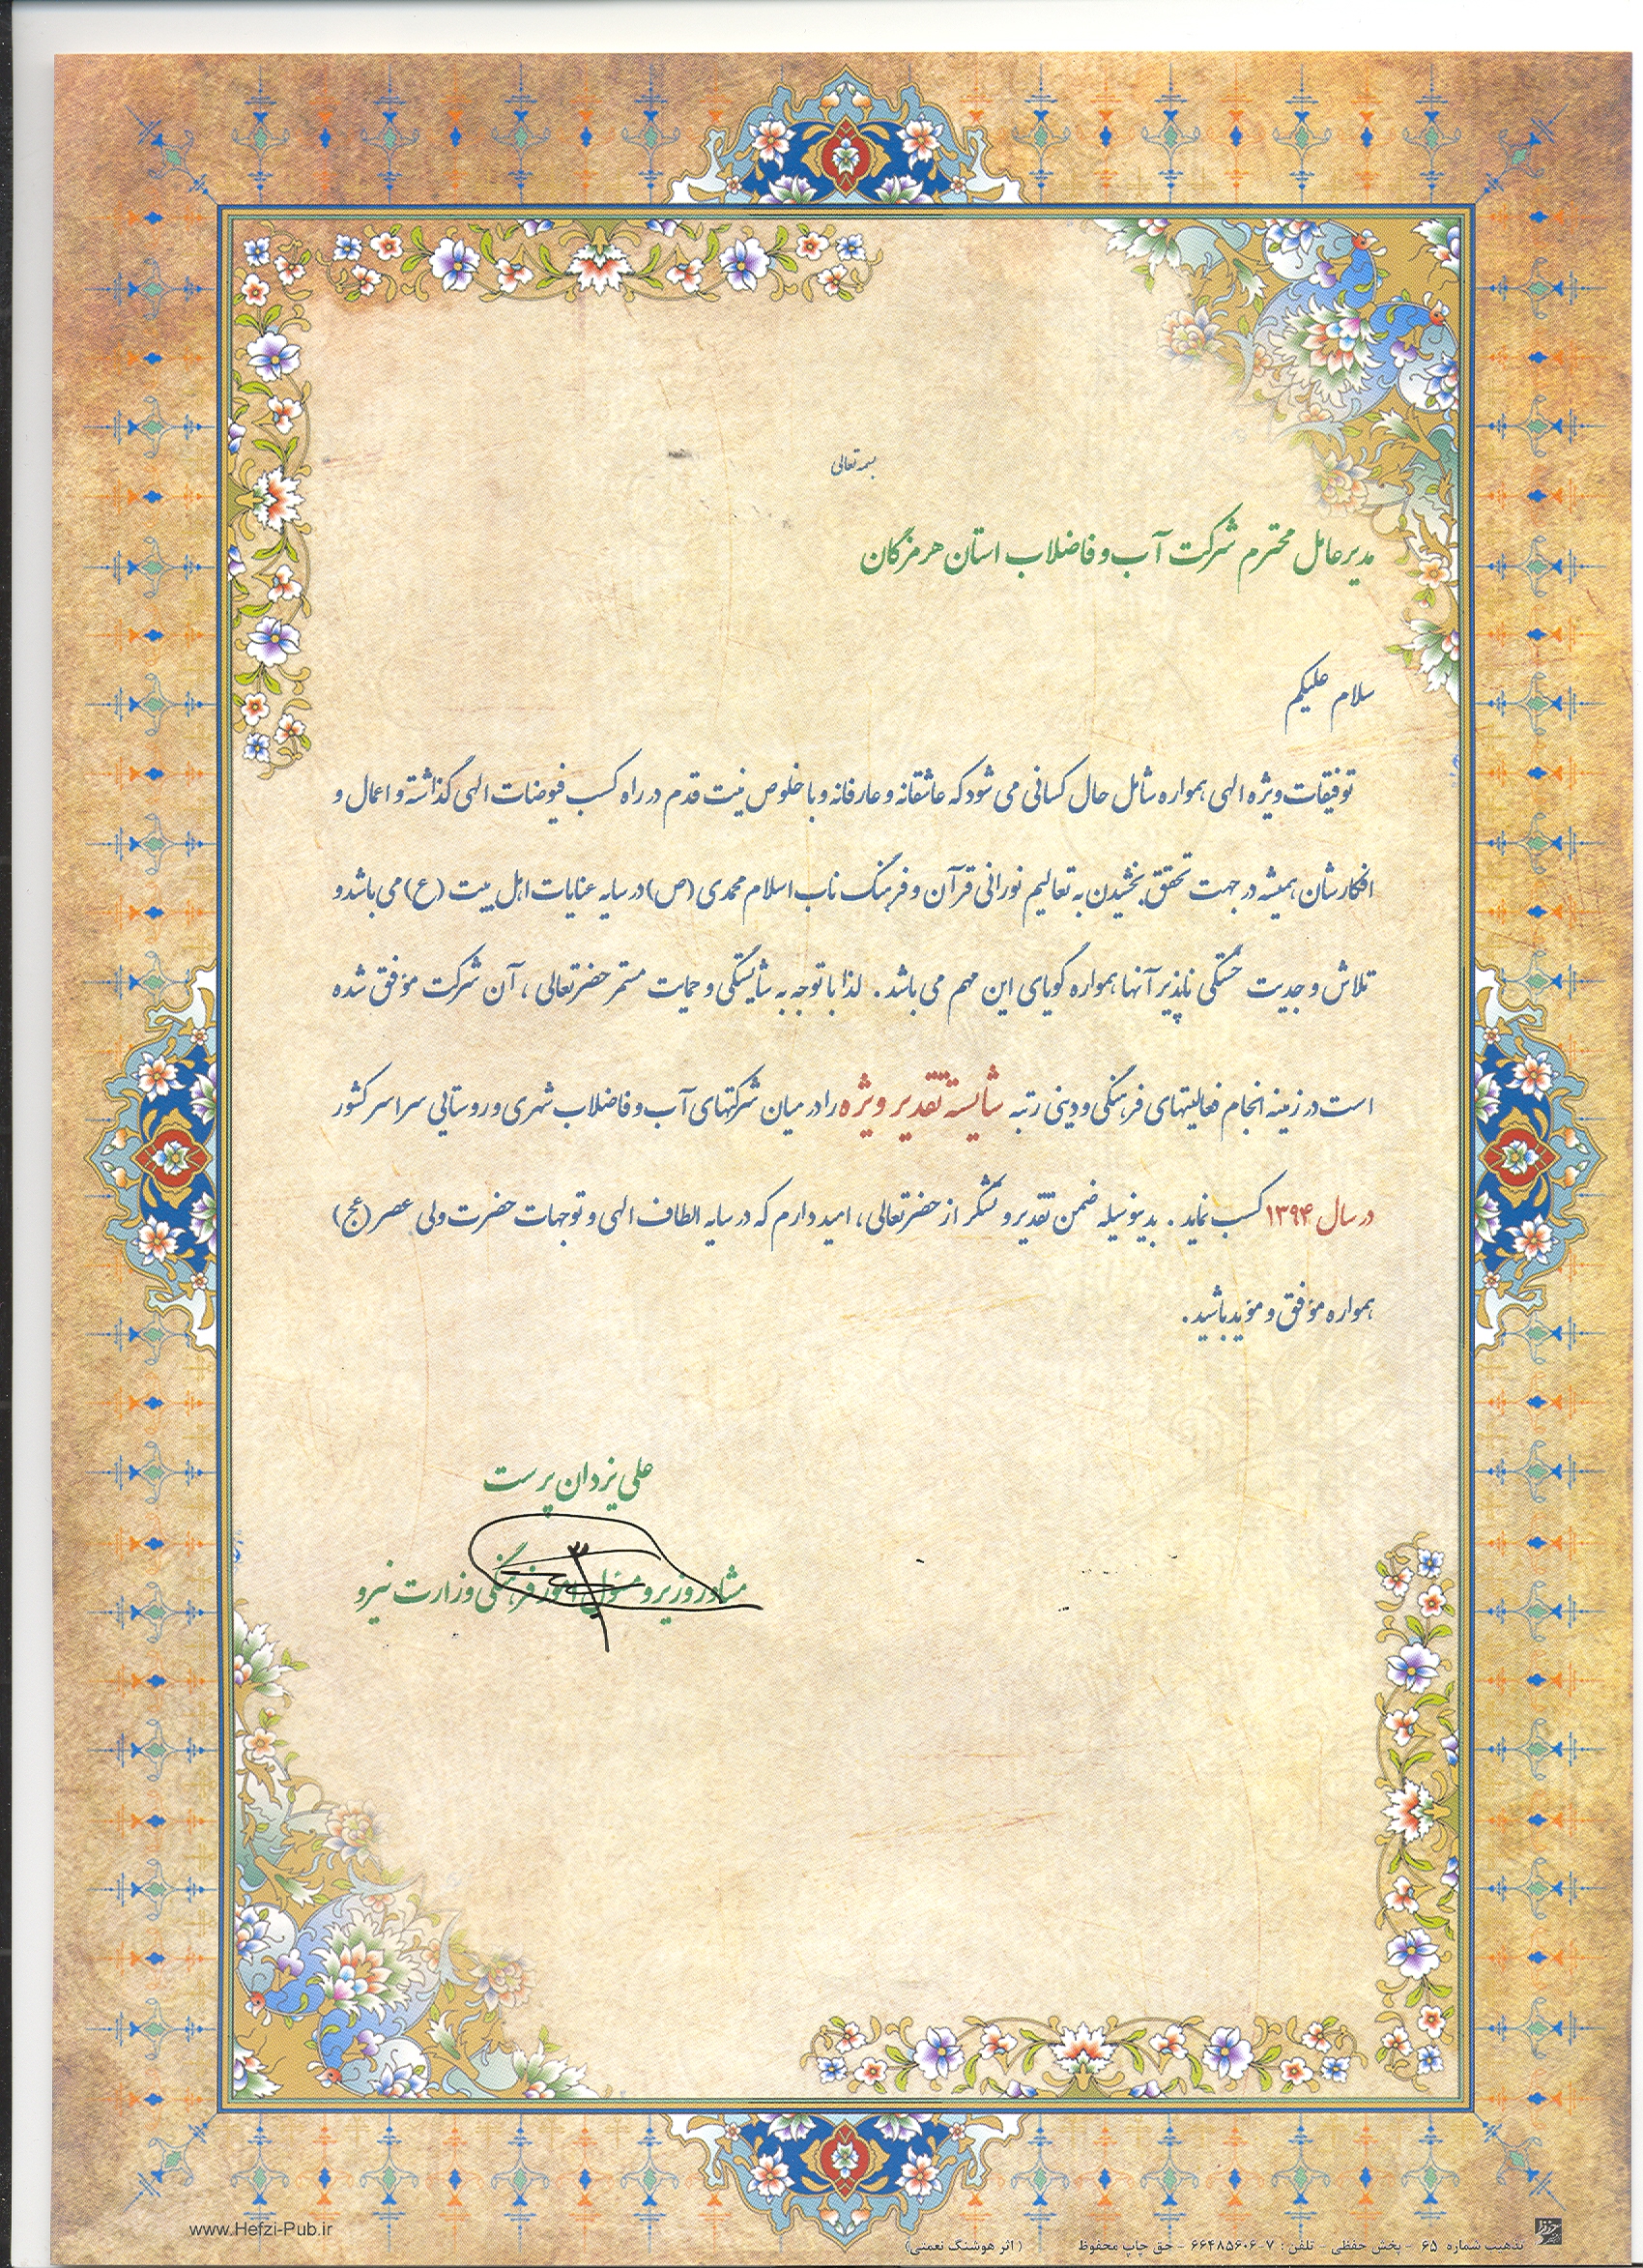 بسمه تعالی
مدیرعامل محترم شرکت آب و فاضلاب استان هرمزگان
سلام علیکم
توفیقات ویژه الهی همواره شامل حال کسانی می شود که عاشقانه و عارفانه و با خلوص نیت قدم در راه کسب فیوضات الهی گذاشته و اعمال و
افکارشان همیشه در جهت تحقق بخشیدن به تعالیم نورانی قرآن و فرهنگ ناب اسلام محمدی (ص) در سایه عنایات اهل بیت (ع) می باشد و
تلاش و جدیت خستگی ناپذیر آنها همواره گویای این مهم می باشد . لذا با توجه به شایستگی و حمایت مستمر حضرتعالی ، آن شرکت مؤفق شده
است در زمینه انجام فعالیتهای فرهنگی و دینی رتبه شایسته تقدیر ویژه را در میان شرکتهای آب و فاضلاب شهری و روستایی سراسر کشور
در سال ۱۳۹۴ کسب نماید . بدینوسیله ضمن تقدیر و تشکر از حضرتعالی ، امید دارم که در سایه الطاف الهی و توجهات حضرت ولی عصر (عج)
همواره مؤفق و مؤید باشید .
علی یزدان پرست
مشاور وزیر و مسئول امور فرهنگی وزارت نیرو
www.Hefzi-Pub.ir
( اثر هوشنگ نعمتی)
تذهیب شماره ۶۵ - پخش حفظی - تلفن : ۷-۶۶۴۸۵۶۰۶ - حق چاپ محفوظ